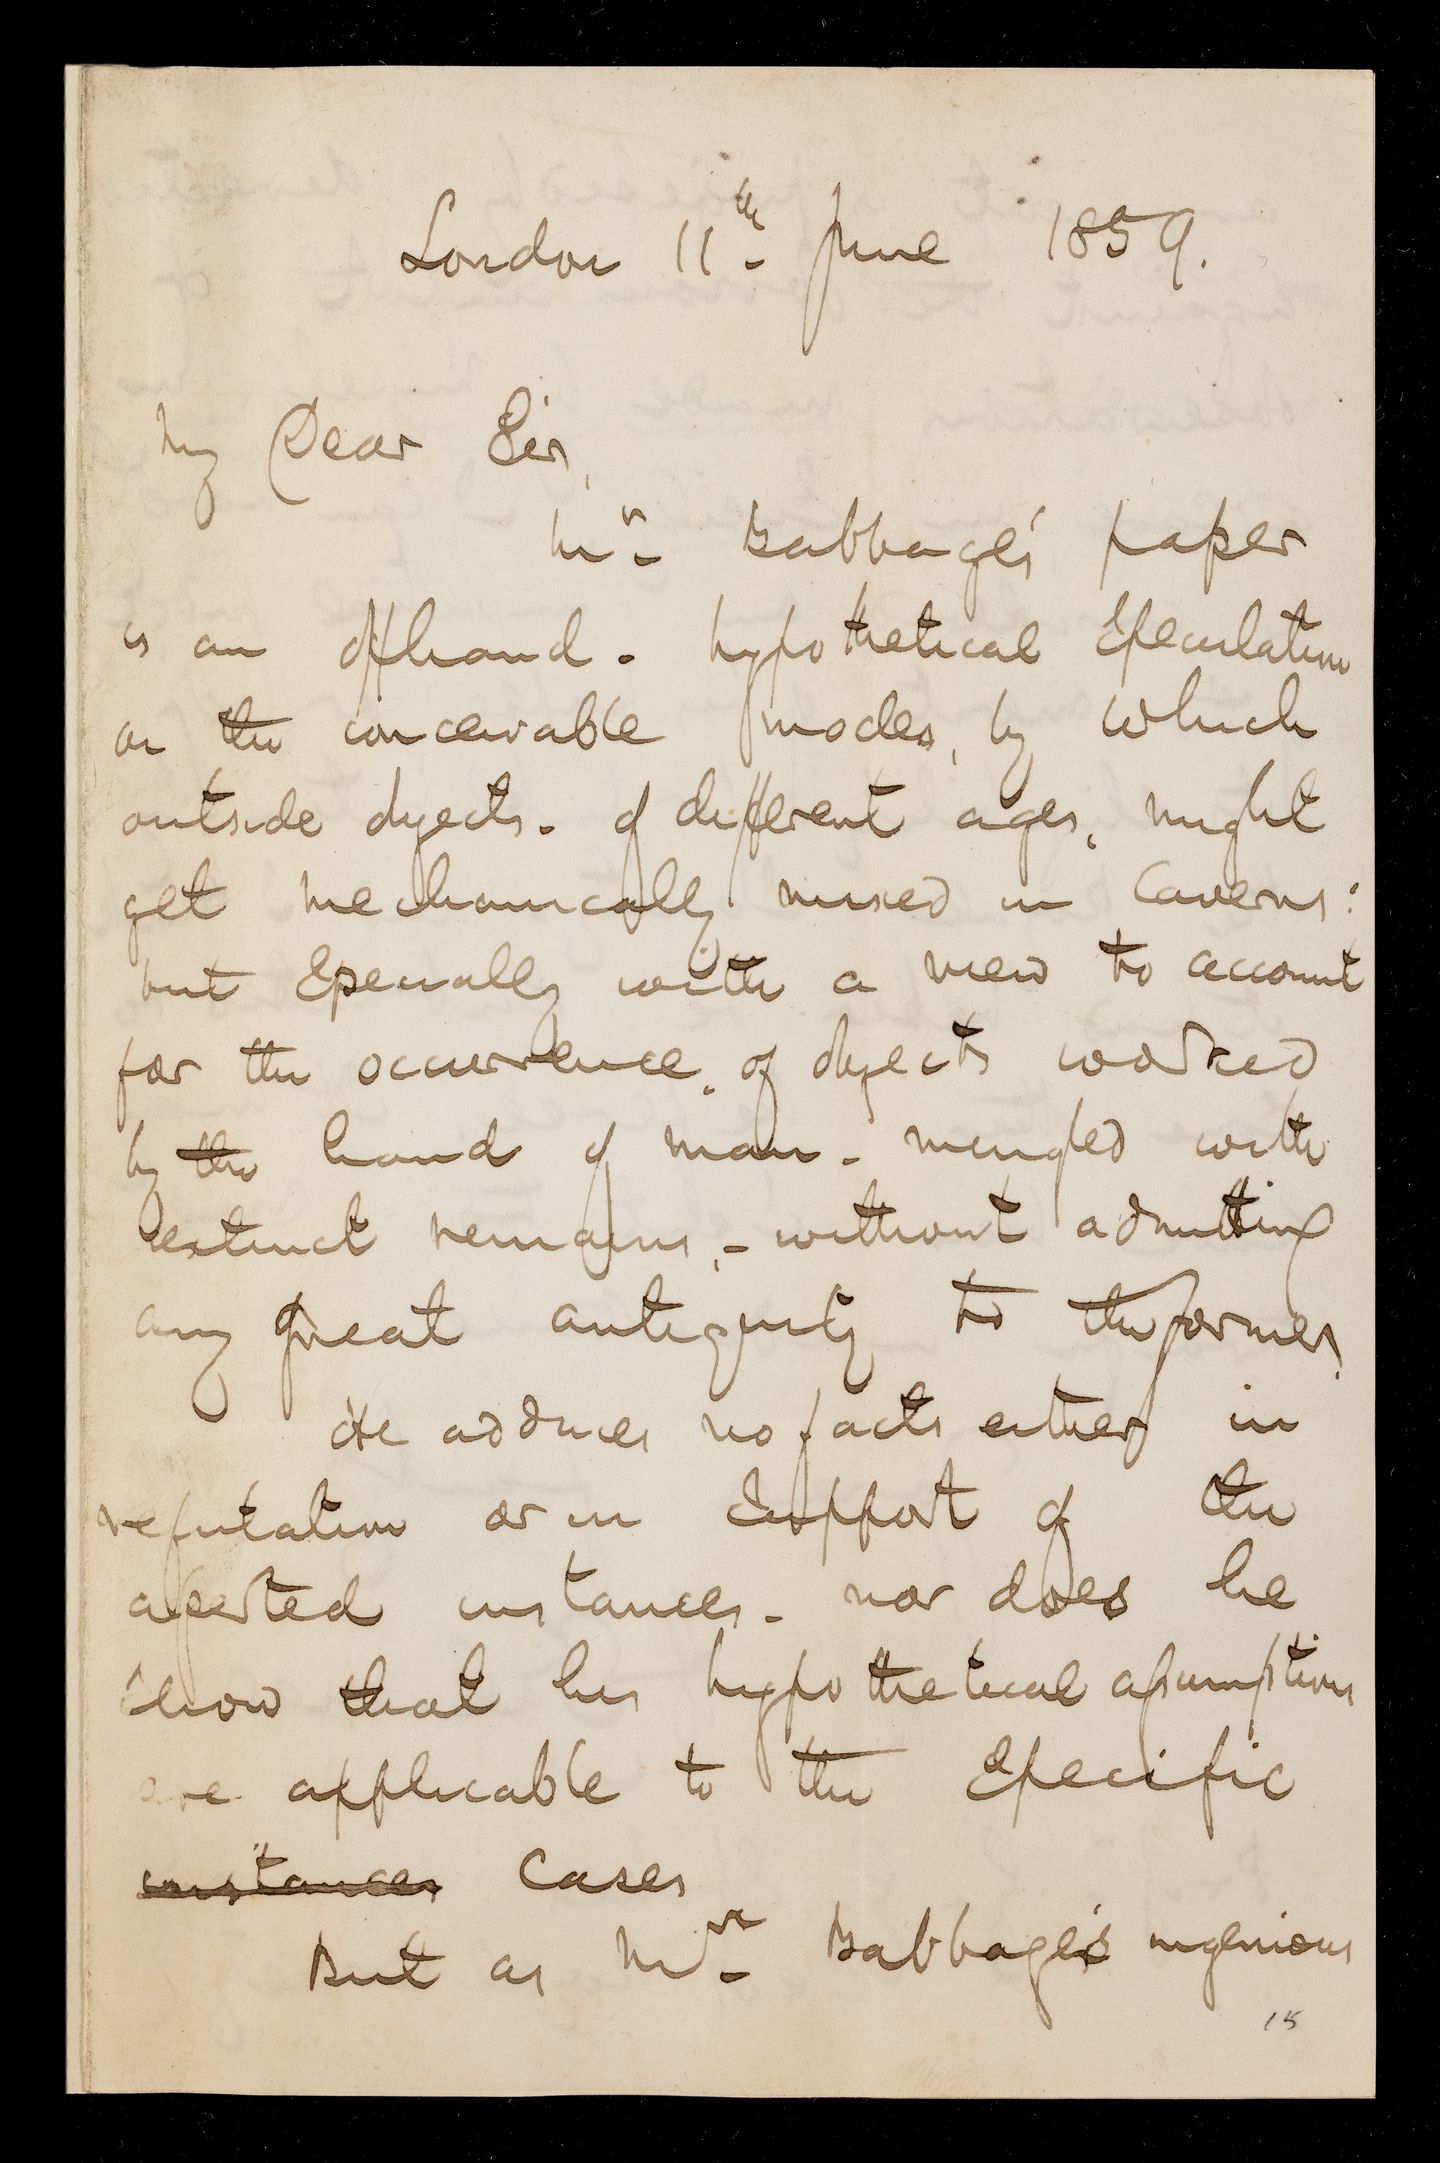 London 11th June 1859.
My Dear Sir,
Mr Babbage's paper
is an offhand. hypothetical Speculation
on the conceivable modes, by which
outside objects. of different ages, might
get mechanically mixed in Caverns:
but Especially with a view to account
for the occurrence, of objects worked
by the hand of man. mingled with
extinct remains,- without admitting
any great antiquity to the former.
He adduces no facts either in
refutation or in Support of the
asserted instances. nor does he
Show that his hypothetical assumptions
are applicable to the Specific
instances Cases
But as Mr Babbage's ingenious
15